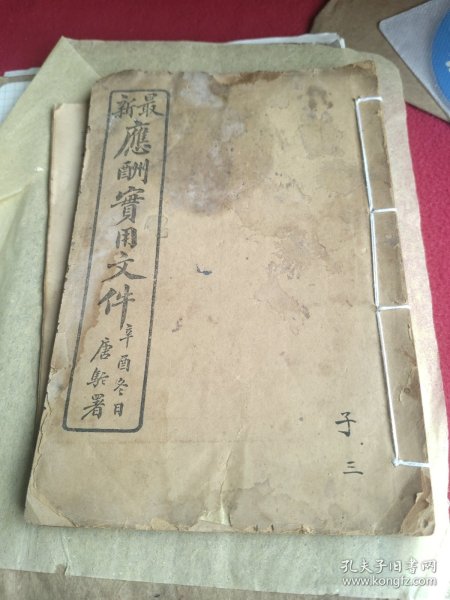 最新
應酬實用文件
辛酉冬日
唐駝署
子 三
孔夫子旧书网
www.kongfz.com